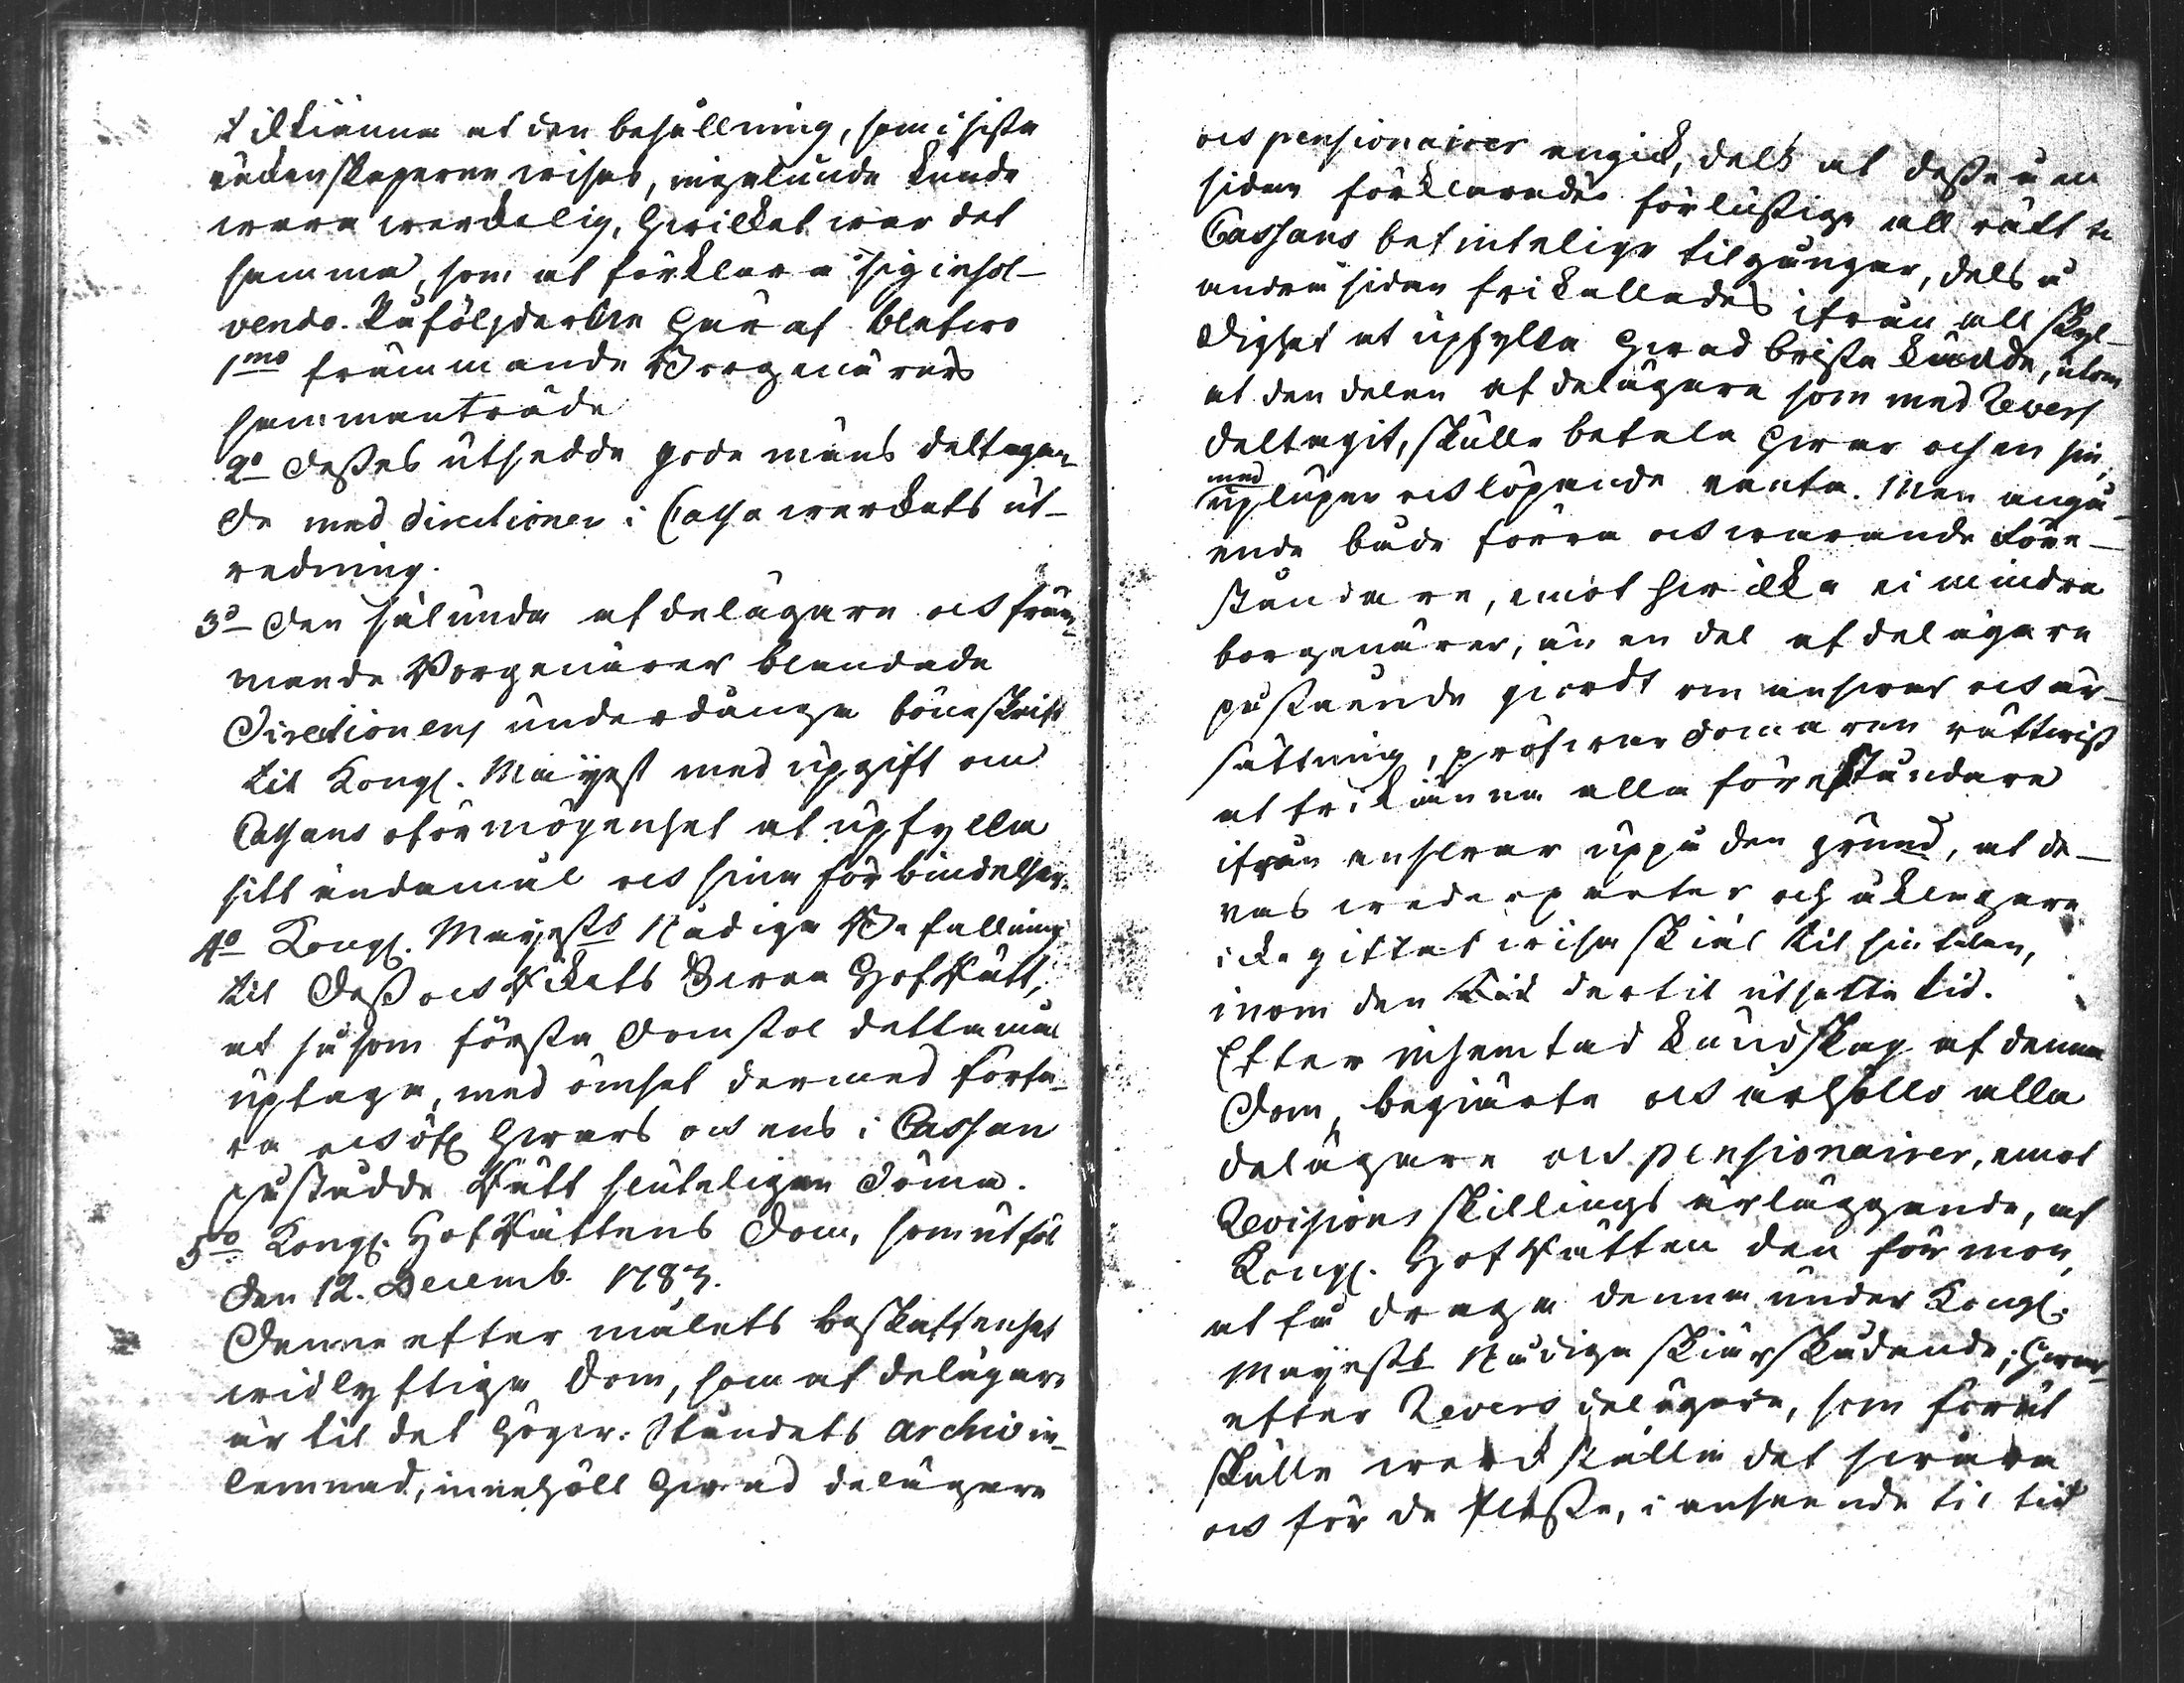 tilkiänna at den behållning, som i sista
räkenskaperne wises, ingalunda kunde
wara werkelig, hwilket war det
samma, som at förklara sig insol-
vendo. Påföljderne här af blefwo
1mo främmande Borgenärers
sammanträde
2o Deßes utsedde gode mäns deltagan-
de med directionen i Cassa werkets ut-
redning.
3o Den sålunda af delägare och främ-
mande Borgenärer blandade
Directionens underdånga böneskrift
til Kongl. Mayest med upgift om
Cassans oförmögenhet at upfylla
sitt ändamål och sina förbindelser.
4o Kongl. Mayests Nådiga Befallning
til Deß och Rikets Swea HofRätt,
at såsom första Domstol detta mål
uptaga, med ömhet dermed forfa-
ra och öfwer hwars och ens i Cassan
påstådde Rätt sluteligen döma.
5o Kongl. HofRättens Dom, som utföl
den 12. Decemb. 1783.
Denne efter målets beskaffenhet
widlyftiga Dom, som af delägare
är til det Högw. Ståndets Archiv in-
lemnad, innehöll hwad delägare
och pensionairer angick, dels at deße å ena
sidan förklarades förlustige all rätt til
Cassans befintelige tilgångar, dels å
andra sidan frikallades ifrån all skyl-
dighet at upfylla hwad brista kunde, utom
at den delen af delägare som med Revers
deltagit, skulle betala hwar och en sin,
med
uplupen och löpande ränta. Men angå-
ende både förra och warande Före-
ståndare, emot hwilka ei mindre
borgenärer, än en del af delägare
påstående giordt om answar och er-
sättning, pröfwar domaren rättwist
at frikiänna alla föreståndare
ifrån answar uppå den grund, at de-
ras wederparter och åklagare
icke gittat wisa skiäl til sin talan,
inom den dertil utsatte tid.
Efter inhemtad kundskap af denna
Dom, begiärte och ärhöllo alla
delägare och pensionairer, emot
Revisions skillings erläggande, af
Kongl. HofRätten den förmon,
at få draga denna under Kongl.
Mayests Nådiga skiärskådande; hwar-
efter Revers delägare, som förut
skulle werckställa det swåra
och för de fleste, i anseende til tid